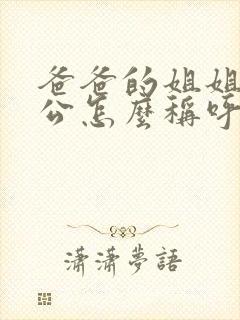 爸爸的姐姐
公怎麼稱呼
瀟瀟夢語